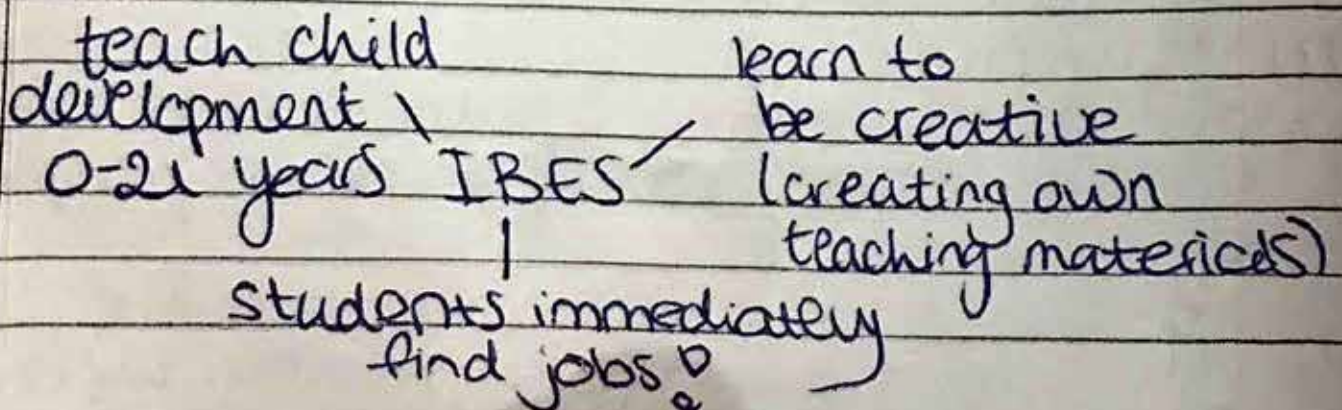 teach child
development
0-21 years
IBES
learn to
be creative
(creating own
teaching materials)
students immediately
find jobs!